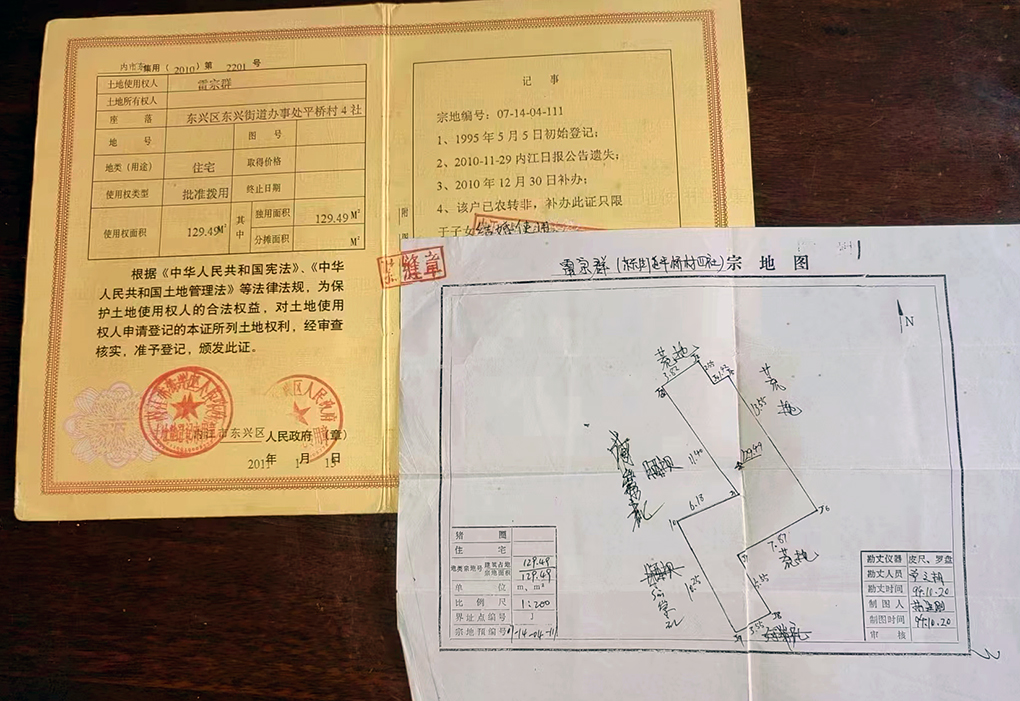 内市东集用（2010）第 2201 号
土地使用权人 雷宗群
土地所有权人
座 落 东兴区东兴街道办事处平桥村4社
地 号 图 号
地类（用途） 住宅 取得价格
使用权类型 批准拨用 终止日期
使用权面积 129.49 M² 其中 独用面积 129.49 M²
分摊面积 M²
根据《中华人民共和国宪法》、《中华
人民共和国土地管理法》等法律法规，为保
护土地使用权人的合法权益，对土地使用
权人申请登记的本证所列土地权利，经审查
核实，准予登记，颁发此证。
内江市东兴区人民政府（章）
2011年 1 月 15 日
记 事
宗地编号：07-14-04-111
1、1995年5月5日初始登记；
2、2010-11-29内江日报公告遗失；
3、2010年12月30日补办；
4、该户已农转非，补办此证只限
于子女结婚使用
附
图
缝章
雷宗群 宗地图
N
荒地
荒地
13.55
129.49
11.40
晒坝
6.13
7.67
荒地
10.25
晒坝
3.55
猪 圈
住 宅
地类宗地号 建筑占地 宗地面积 129.49 129.49
单 位 m、m²
比 例 尺 1:200
界址点编号 J
宗地预编号 -14-04-11
勘丈仪器 皮尺、罗盘
勘丈人员
勘丈时间 94.10.20
制图人
制图时间 94.10.20
审 核